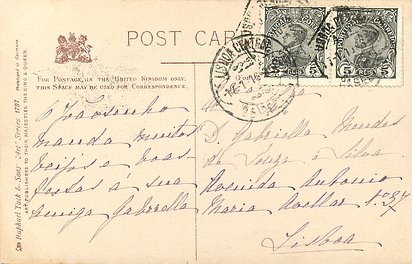 POST CARD
FOR POSTAGE, IN THE UNITED KINGDOM ONLY,
THIS SPACE MAY BE USED FOR CORRESPONDENCE.
(For
Raphael Tuck & Sons' "Art" Series 1797.
ART PUBLISHERS TO THEIR MAJESTIES THE KING & QUEEN.
LISBOA CENTRAL
5 REIS 5
5 REIS 5
O Joãosinho
manda muitos
beijos e boas
festas á sua
amiga Gabriella
D. Gabriella Mendes
de Souza e Silva
Avenida Antonio
Maria Avellar Nº 37
Lisboa